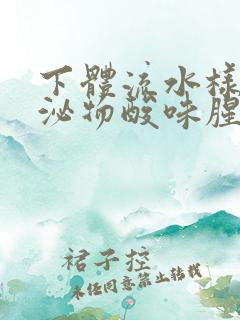 下體流水樣
泌物酸味腥
裙子控
未任同意禁止转载